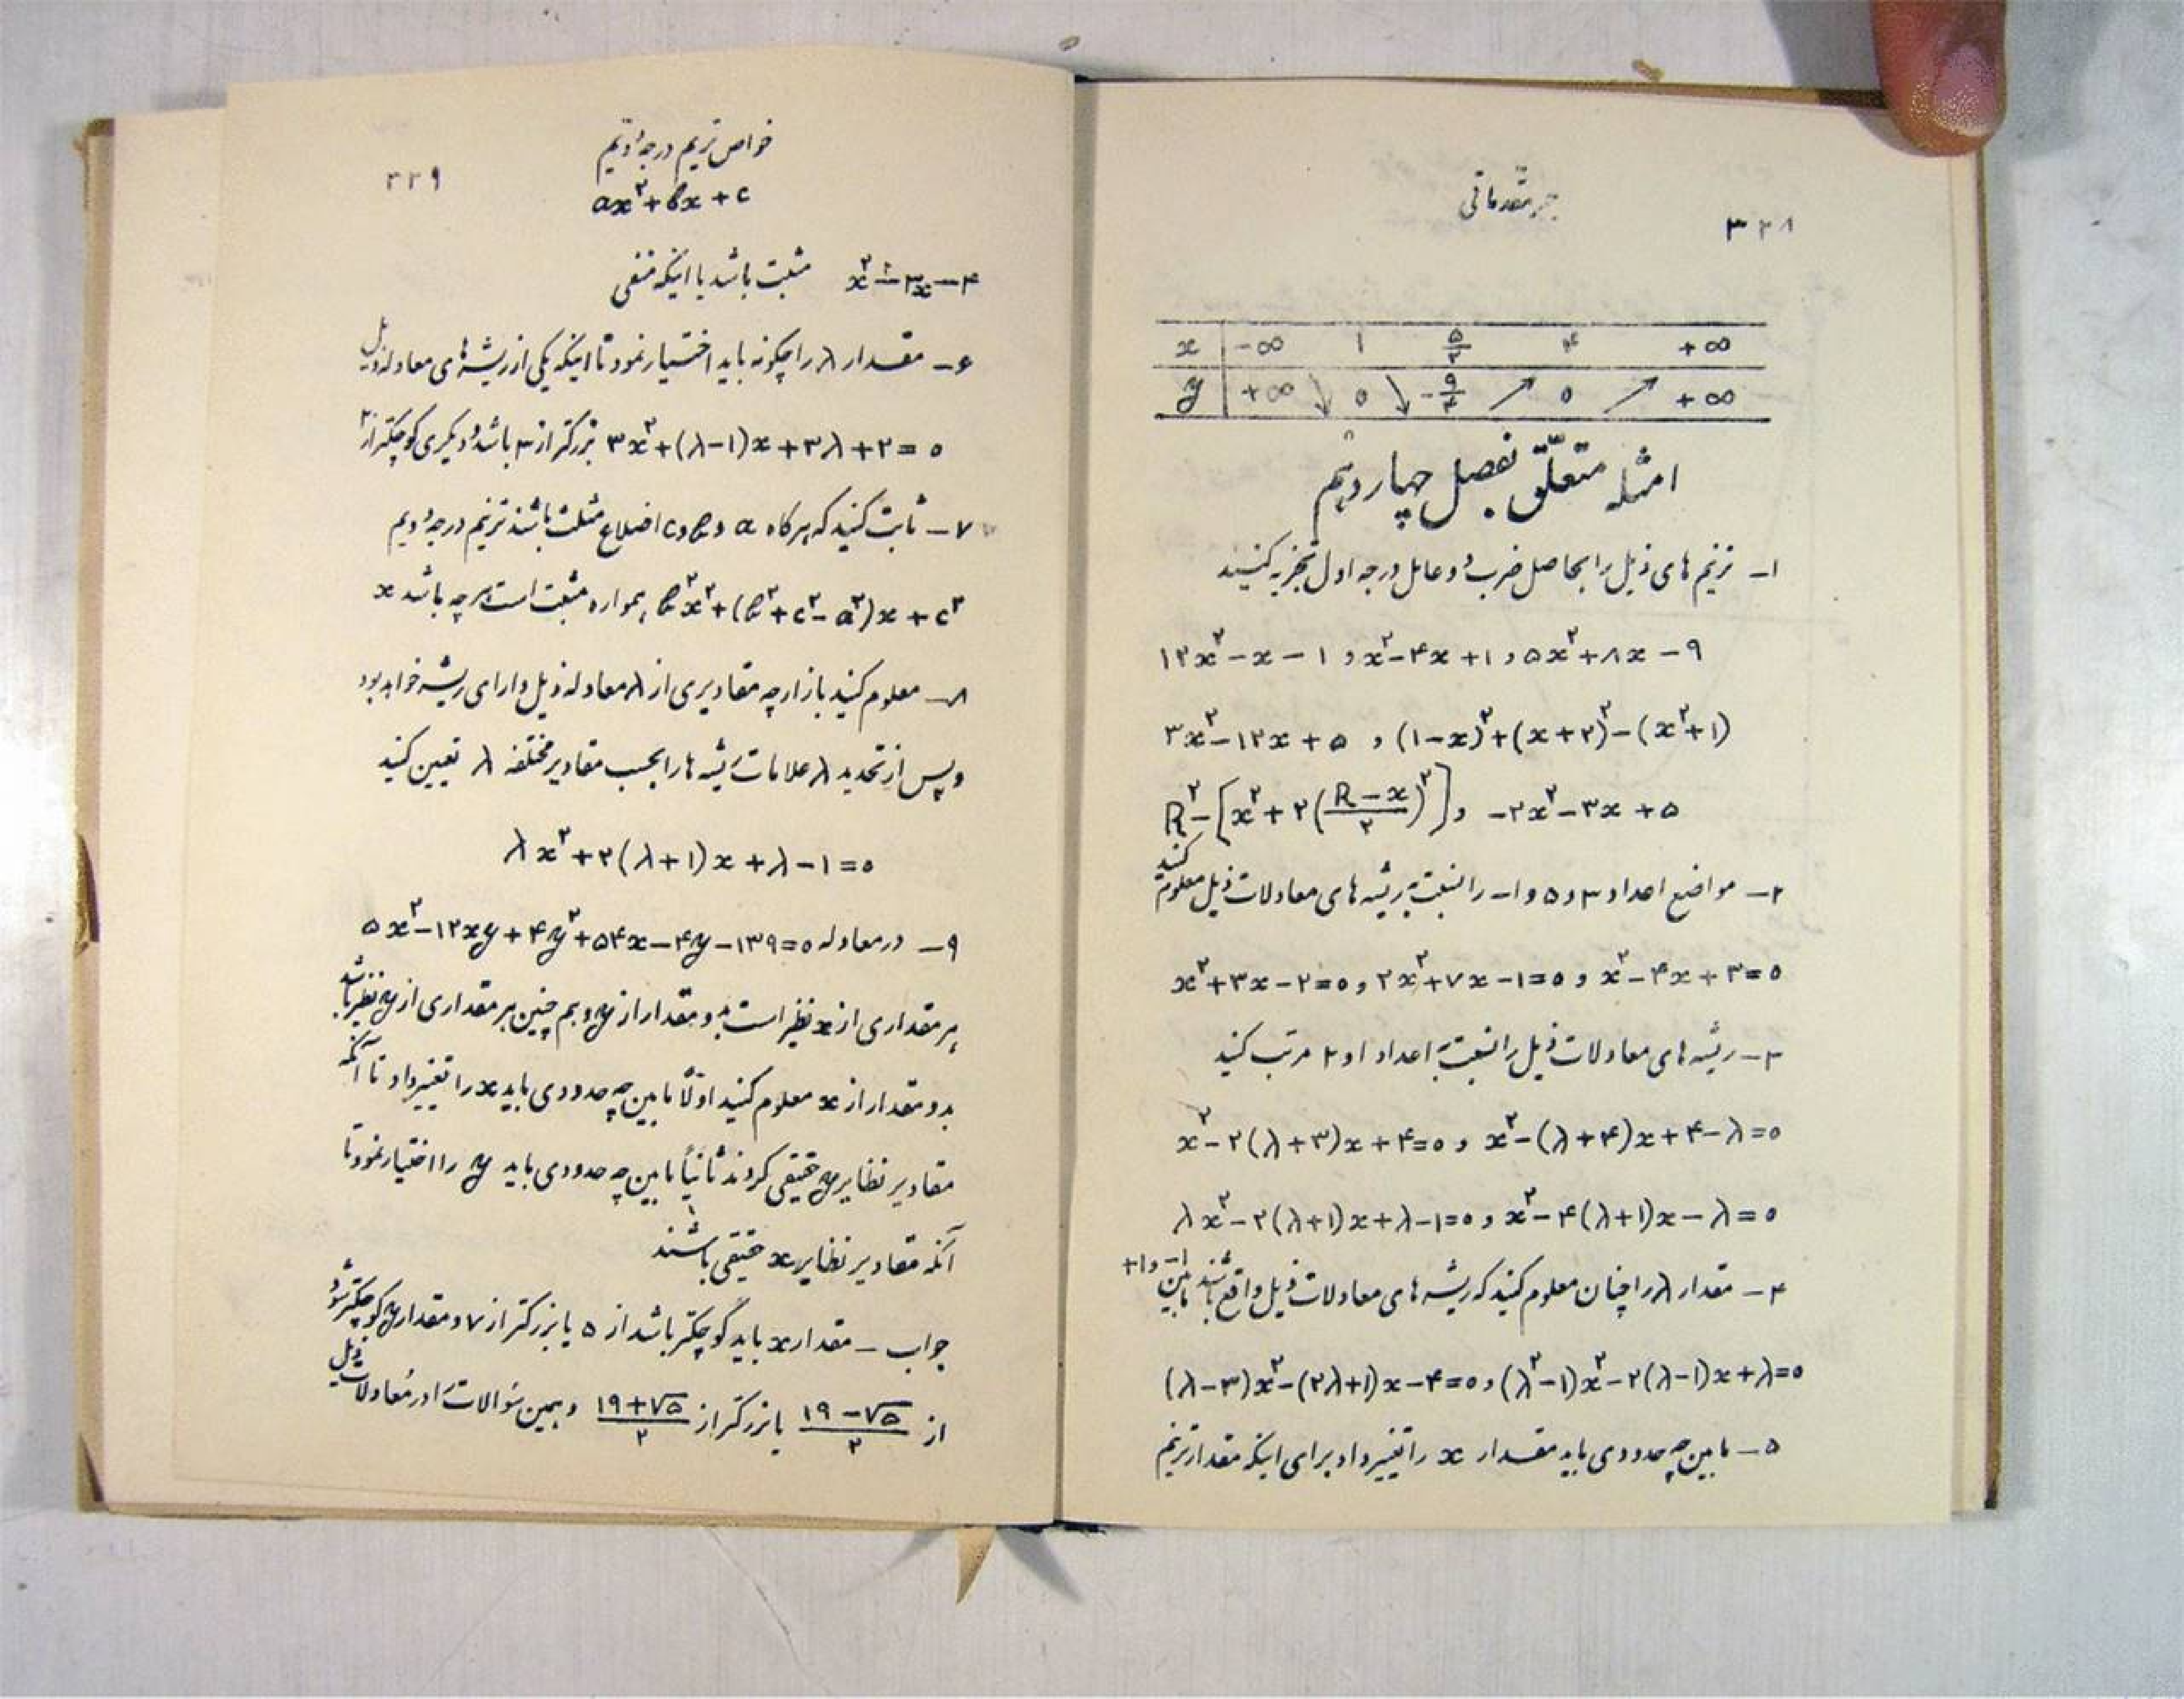 جبر مقدماتی
۳۲۸
x | -∞ ۱ ۵/۲ ۴ +∞
y | +∞ ↘ ۰ ↘ -۹/۴ ↗ ۰ ↗ +∞
امثله متعلّق بفصل چهاردهم
۱- ترینم های ذیل را بحاصل ضرب دو عامل درجه اول تجزیه کنید
۱۲x²-x-۱ و x²-۴x+۱ و ۵x²+۸x-۹
۳x²-۱۲x+۵ و (۱-x)²+(x+۲)²-(x²+۱)
R²-[x²+۲((R-x)/۲)²] و -۲x²-۳x+۵
۲- مواضع اعداد ۳ و ۵ و ۱- را نسبت به ریشه های معادلات ذیل معلوم کنید
x²+۳x-۲=۰ و ۲x²+۷x-۱=۰ و x²-۴x+۳=۰
۳- ریشه های معادلات ذیل را نسبت به اعداد ۱ و ۲ مرتب کنید
x²-۲(λ+۳)x+۴=۰ و x²-(λ+۴)x+۴-λ=۰
λx²-۲(λ+۱)x+λ-۱=۰ و x²-۴(λ+۱)x-λ=۰
۴- مقدار λ را چنان معلوم کنید که ریشه های معادلات ذیل واقع باشند مابین ۱- و ۱+
(λ-۳)x²-(۲λ+۱)x-۴=۰ و (λ²-۱)x²-۲(λ-۱)x+λ=۰
۵- مابین چه حدودی باید مقدار x را تغییر داد برای اینکه مقدار ترینم
خواص ترینم درجه دویم
۳۲۹
ax²+bx+c
x²-۳x-۴ مثبت باشد یا اینکه منفی
۶- مقدار λ را چگونه باید اختیار نمود تا اینکه یکی از ریشه های معادله ذیل
۳x²+(λ-۱)x+۳λ+۲=۰ بزرگتر از ۳ باشد و دیگری کوچکتر از ۲
۷- ثابت کنید که هرگاه a و b و c اضلاع مثلث باشند ترینم درجه دویم
b²x²+(b²+c²-a²)x+c² همواره مثبت است هرچه باشد x
۸- معلوم کنید بازاء چه مقادیری از λ معادله ذیل دارای ریشه خواهد بود
و پس از تحدید λ علامات ریشه ها را بحسب مقادیر مختلفه λ تعیین کنید
λx²+۲(λ+۱)x+λ-۱=۰
۹- در معادله ۵x²-۱۲xy+۴y²+۵۴x-۴y-۱۳۹=۰
هر مقداری از x نظیر است بدو مقدار از y و هم چنین هر مقداری از y نظیر باشد
بدو مقدار از x معلوم کنید اولاً مابین چه حدودی باید x را تغییر داد تا آنکه
مقادیر نظایر y حقیقی گردند ثانیاً مابین چه حدودی باید y را اختیار نمود تا
آنکه مقادیر نظایر x حقیقی باشند
جواب - مقدار x باید کوچکتر باشد از ۵ یا بزرگتر از ۷ و مقدار y کوچکتر شود
از (۱۹-√۵)/۲ یا بزرگتر از (۱۹+√۵)/۲ و همین سئوالات را در معادلات ذیل